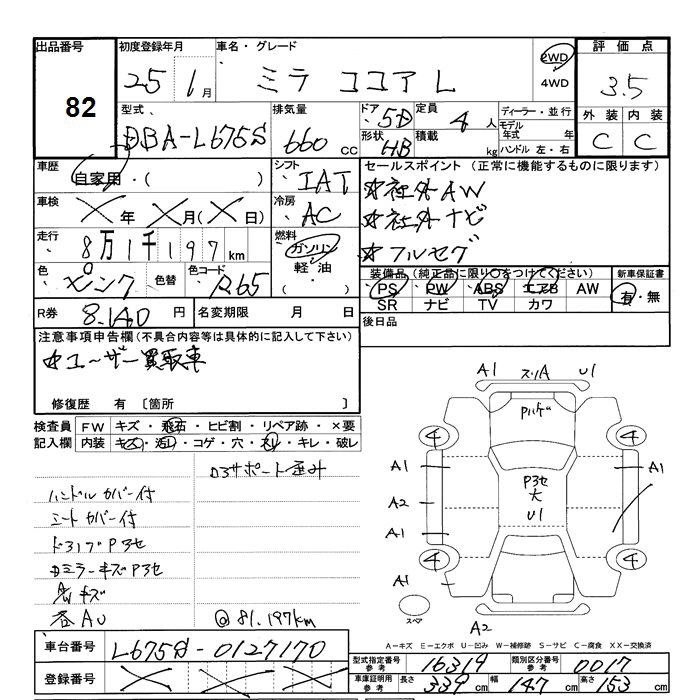 出品番号
82
初度登録年月
25 1月
車名・グレード
ミラ ココア L
2WD
4WD
評価点
3.5
外装 内装
C C
型式
DBA-L675S
排気量
660 cc
ドア 5D
形状 HB
定員 4 人
積載 kg
ディーラー・並行
モデル年式 年
ハンドル 左・右
車歴
自家用・( )
シフト
IAT
セールスポイント (正常に機能するものに限ります)
☆社外AW
☆社外ナビ
☆フルセグ
車検
╳年 ╳月(╳日)
冷房
AC
走行
8万1千197km
燃料
ガソリン
軽油
色
ピンク
色替
色コード
R65
装備品 (純正品に限り○をつけてください)
PS PW ABS エアB AW
SR ナビ TV カワ
新車保証書
有・無
R券
8.140円
名変期限 月 日
後日品
注意事項申告欄(不具合内容等は具体的に記入して下さい)
☆ユーザー買取車
修復歴 有 〔箇所 〕
検査員記入欄
FW キズ・飛石・ヒビ割・リペア跡・×要
内装 キズ・汚レ・コゲ・穴・スレ・キレ・破レ
ハンドルカバー付
シートカバー付
P3セ
ミラーキズP3セ
キズ
各AU
サポート歪み
@81.197km
A1 スリA U1
Pハゲ
4 4
A1 A1
P3セ
大
U1
A2
A1
4 4
A1
スペア
A2
A=キズ E=エクボ U=凹み W=補修跡 S=サビ C=腐食 XX=交換済
車台番号
L675S-0127170
登録番号
型式指定番号 参考
16319
類別区分番号 参考
0017
車庫証明用 参考
長さ 339cm 幅 147cm 高さ 153cm